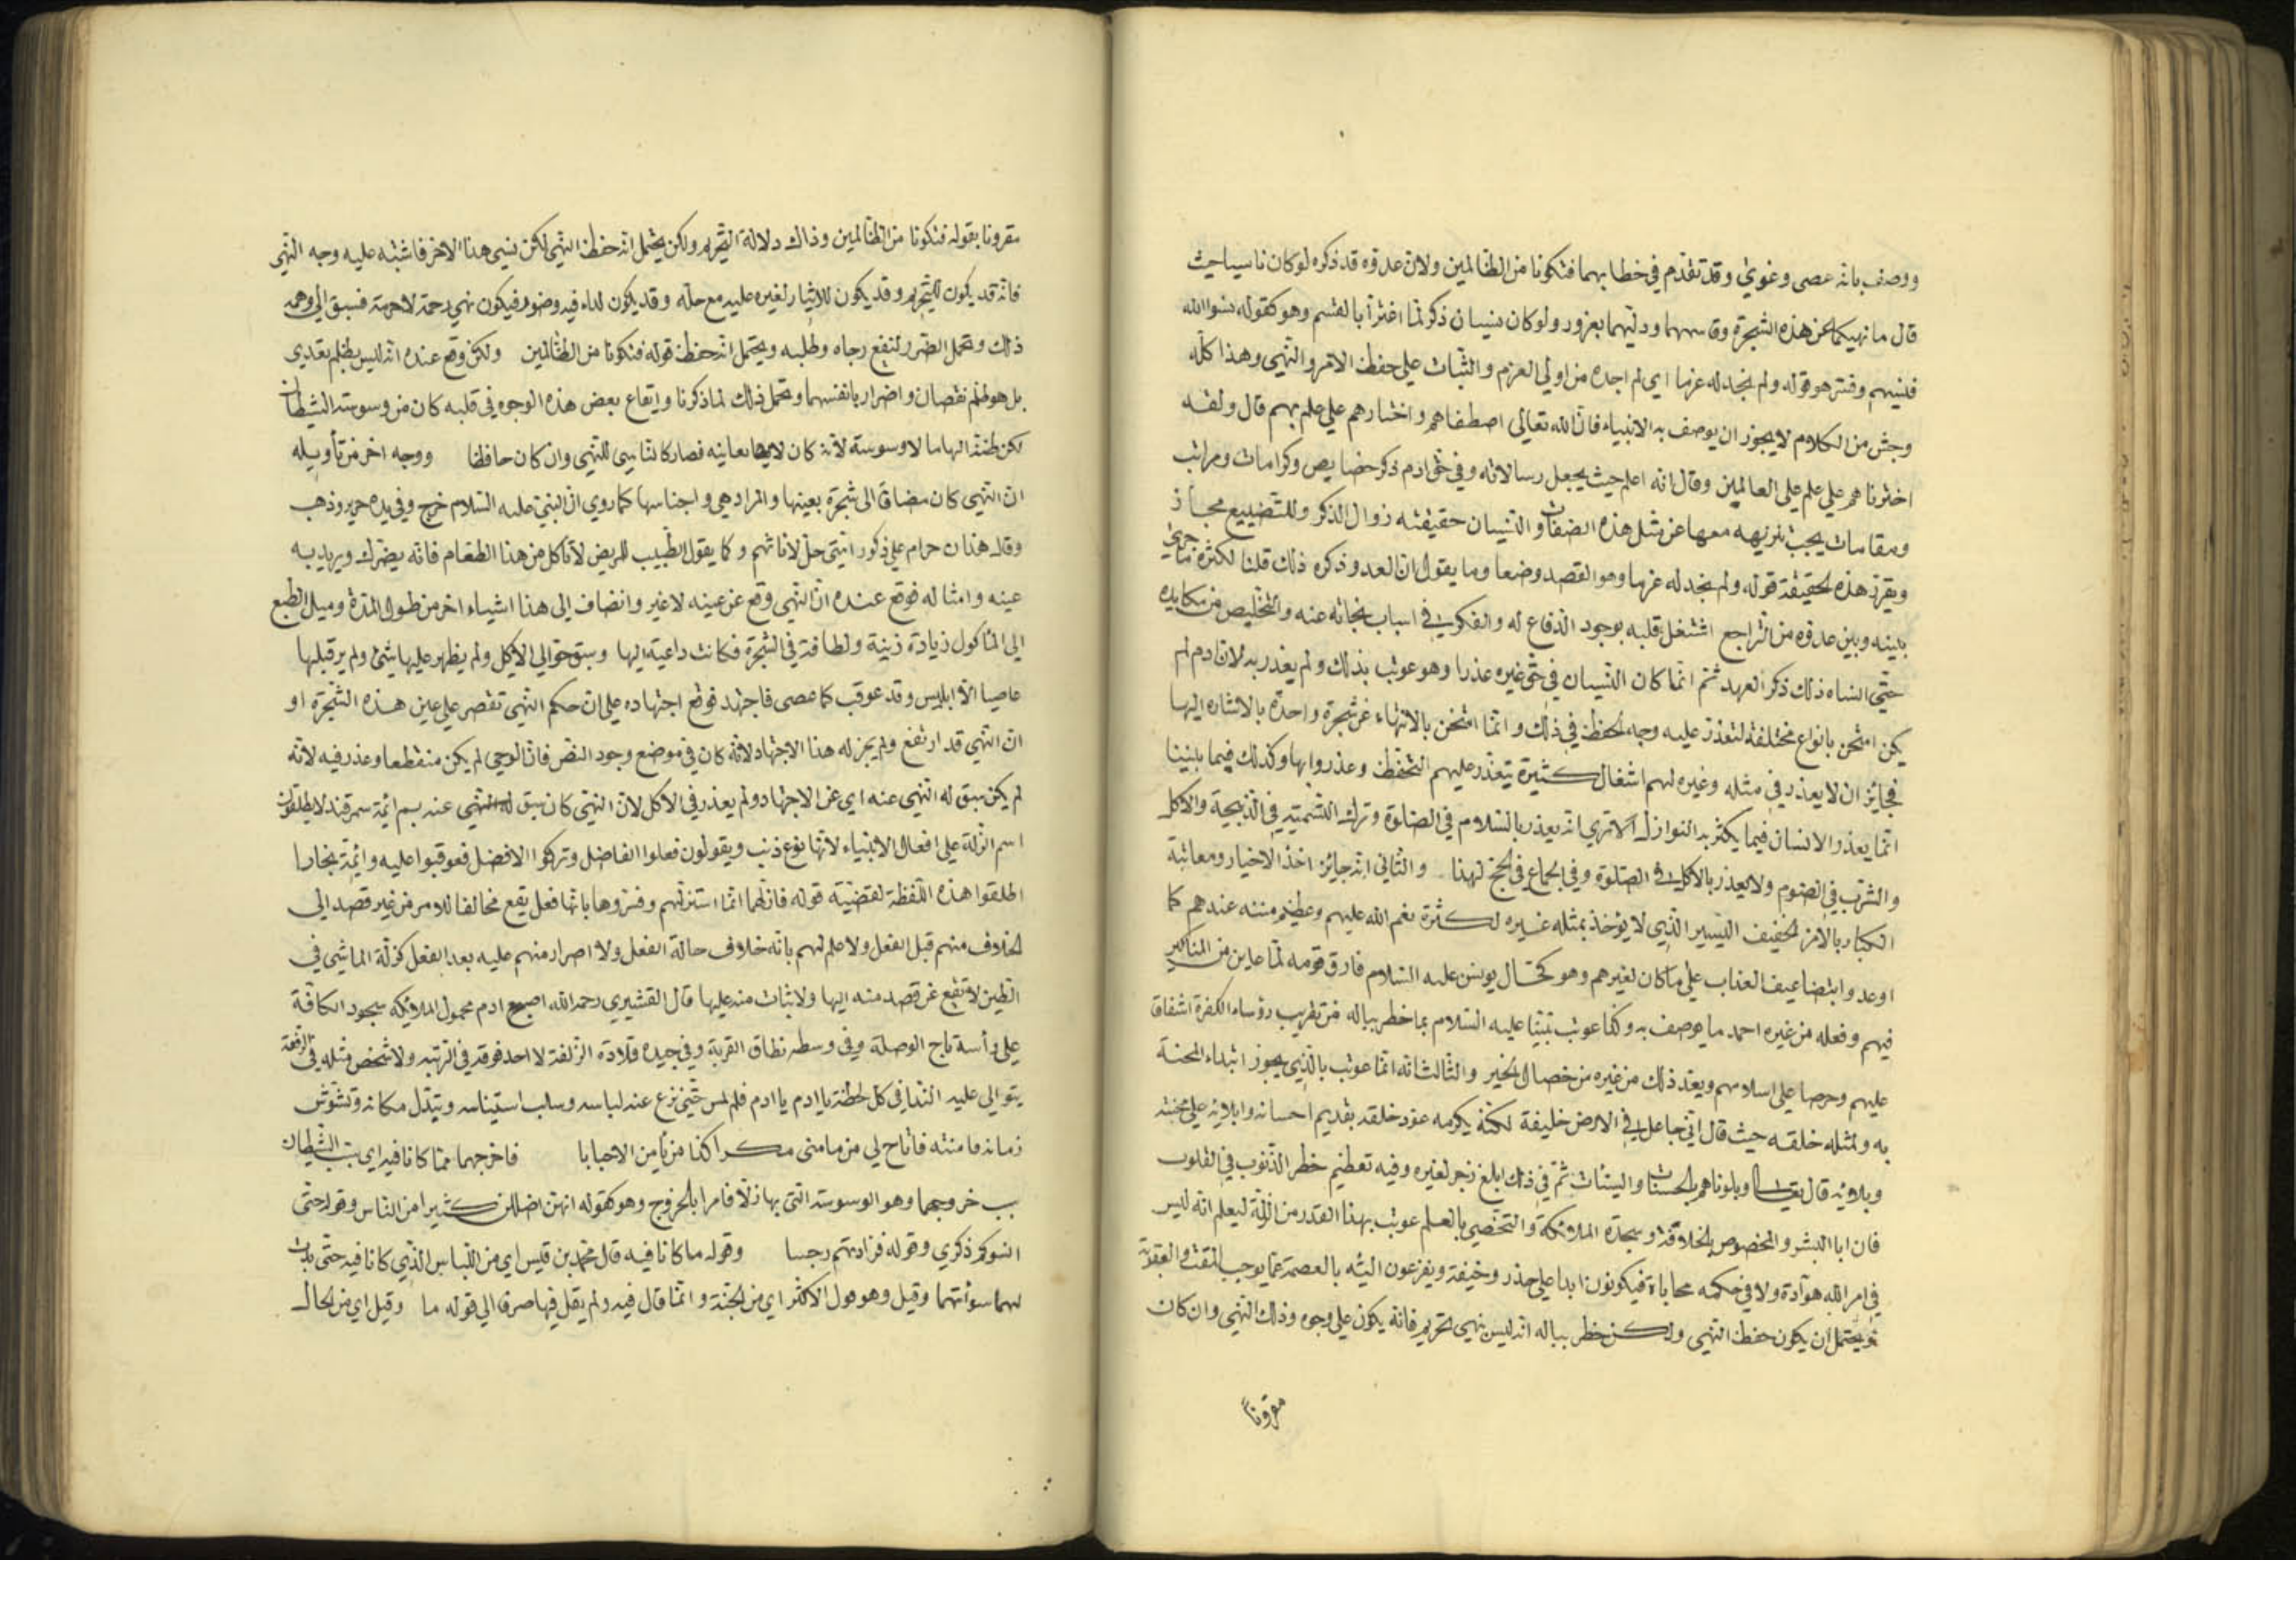 ووصف بانه عصى وغوى وقد تقدم في خطابهما فتكونا من الظالمين ولان عدوه قد ذكره لو كان ناسيا حيث
قال ما نهيكما عن هذه الشجرة وقاسمهما ودليهما بغرور ولو كان بنسيان ذكر لما اغترا بالقسم وهو كقوله نسوا الله
فنسيهم وفسر هو قوله ولم نجد له عزما اي لم اجده من اولي العزم والثبات على حفظ الامر والنهي وهذا كله
وجش من الكلام لا يجوز ان يوصف به الانبياء فان الله تعالى اصطفاهم واختارهم على علم بهم قال ولقد
اخترناهم على علم على العالمين وقال انه اعلم حيث يجعل رسالاته وفي حق ادم ذكر خصايص وكرامات ومراتب
ومقامات يجب تنزيهه معها عن مثل هذه الصفات والنسيان حقيقته زوال الذكر وللتضييع مجاز
ويقرر هذه الحقيقة قوله ولم نجد له عزما وهو القصد وضعا وما يقول ان العدو ذكره ذلك قلنا لكثرة ما جرى
بينه وبين عدوه من التراجع اشتغل قلبه بوجود الدفاع له والفكر في اسباب نجاته عنه والتخليص من مكايده
حتى انساه ذلك ذكر العهد ثم انما كان النسيان في حق غيره عذرا وهو عوتب بذلك ولم يعذر به لان ادم لم
يكن امتحن بانواع مختلفة لتعذر عليه وجه الحفظ في ذلك وانما امتحن بالانتهاء عن شجرة واحدة بالاشارة اليها
فجايز ان لا يعذر في مثله وغيره لهم اشغال كثيرة يتعذر عليهم التحفظ وعذروا بها وكذلك فيما بيننا
انما يعذر الانسان فيما يكثر به النوازل الا ترى انه يعذر بالسلام في الصلوة وترك التسمية في الذبيحة والاكل
والشرب في الصوم ولا يعذر بالاكل في الصلوة وفي الجماع في الحج لهذا والثاني انه جايز اخذ الاخيار ومعاتبة
الكبار بالامر الخفيف اليسير الذي لا يؤخذ بمثله غيره لكثرة نعم الله عليهم وعظيم مننه عندهم كما
اوعدوا بتضاعيف العذاب على ما كان لغيرهم وهو كحال يونس عليه السلام فارق قومه لما عاين من المناكير
فيهم وفعله من غيره احمد ما يوصف به وكما عوتب نبينا عليه السلام بما خطر بباله من تقريب رؤساء الكفرة اشفاقا
عليهم وحرصا على اسلامهم ويعد ذلك من غيره من خصال الخير والثالث انه انما عوتب بالذي يجوز ابتداء المحنة
به ولمثله خلقه حيث قال اني جاعل في الارض خليفة لكنه يكرمه عود خلقه بقديم احسانه وابلائه على محبته
وبلائه قال تعالى وبلوناهم بالحسنات والسيئات ثم في ذلك ابلغ زجر لغيره وفيه تعظيم خطر الذنوب في القلوب
فان ابا البشر والمخصوص بالخلافة وسجدة الملائكة والتخصيص بالعلم عوتب بهذا القدر من الزلة ليعلم انه ليس
في امر الله هوادة ولا في حكمه محاباة فيكونون ابدا على حذر وخيفة ويفزعون اليه بالعصمة عما يوجب المقت والعقوبة
ويحتمل ان يكون حفظ النهي ولكن خطر بباله انه ليس نهي تحريم فانه يكون على وجوه وذلك النهي وان كان
مقرونا
مقرونا بقوله فتكونا من الظالمين وذلك دلالة التحريم ولكن يحتمل انه حفظ النهي لكن نسي هذا الاخر فاشتبه عليه وجه النهي
فانه قد يكون للتحريم وقد يكون للايثار لغيره عليه مع حله وقد يكون لداء فيه وضرر فيكون نهي رحمة لا حرمة فسبق الى وهمه
ذلك وتحمل الضرر لنفع رجاه وطلبه ويحتمل انه حفظ قوله فتكونا من الظالمين ولكن وقع عنده انه ليس بظلم بعدي
بل هو ظلم نقصان واضرار بانفسهما وتحمل ذلك لما ذكرنا وايقاع بعض هذه الوجوه في قلبه كان من وسوسة الشيطان
لكن ظنه الهاما لا وسوسة لانه كان لا يعاينه فصار كالناسي للنهي وان كان حافظا ووجه اخر من تأويله
ان النهي كان مضافا الى شجرة بعينها والمراد هي واجناسها كما روي ان النبي عليه السلام خرج وفي يده حرير وذهب
وقال هذان حرام على ذكور امتي حل لاناثهم وكما يقول الطبيب للمريض لا تأكل من هذا الطعام فانه يضرك ويريد به
عينه وامثاله فوقع عنده ان النهي وقع عن عينه لا غير وانضاف الى هذا اشياء اخر من طول المدة وميل الطبع
الى المأكول زيادة زينة ولطافة في الشجرة فكانت داعية اليها وسبق حوا الى الاكل ولم يظهر عليها شئ ولم ير قبلها
عاصيا الا ابليس وقد عوقب كما عصى فاجتهد فوقع اجتهاده على ان حكم النهي تقصر على عين هذه الشجرة او
ان النهي قد ارتفع ولم يجز له هذا الاجتهاد لانه كان في موضع وجود النص فان الوحي لم يكن منقطعا وعذر فيه لانه
لم يكن سبق له النهي عنه اي عن الاجتهاد ولم يعذر في الاكل لان النهي كان سبق له النهي عنه بسم ايمة سمرقند لا يطلقون
اسم الزلة على افعال الانبياء لانها نوع ذنب ويقولون فعلوا الفاضل وتركوا الافضل فعوقبوا عليه وايمة بخارا
اطلقوا هذه اللفظة لقضية قوله فازلهما انما استزلهم وفسروها بانها فعل يقع مخالفا للامر من غير قصد الى
الخلاف منهم قبل الفعل ولا علم لهم بانه خلاف حالة الفعل ولا اصرار منهم عليه بعد الفعل كزلة الماشي في
الطين لا تقع عن قصد منه اليها ولا ثبات منه عليها قال القشيري رحمه الله اصبح ادم محمول الملائكة سجود الكافة
على رأسه تاج الوصلة وفي وسطه نطاق القربة وفي جيده قلادة الزلفة لا احد فوقه في الرتبة ولا شخص مثله في الرفعة
يتوالى عليه النداء في كل لحظة يا ادم يا ادم فلم يمس حتى نزع عنه لباسه وسلب استيناسه وتبدل مكانه وتشوش
زمانه فامنته فاتاح لي من مامني مكرا كذا من يأمن الاحبابا فاخرجهما مما كانا فيه اي سبب الشيطان
سبب خروجهما وهو الوسوسة التي بها زلا فامرا بالخروج وهو كقوله انهن اضللن كثيرا من الناس وقوله حتى
انسوكم ذكري وقوله فزادتهم رجسا وقوله مما كانا فيه قال محمد بن قيس اي من اللباس الذي كانا فيه حتى بدت
لهما سوأتهما وقيل وهو قول الاكثر اي من الجنة وانما قال فيه ولم يقل فيها صرفا الى قوله ما وقيل اي من الحال